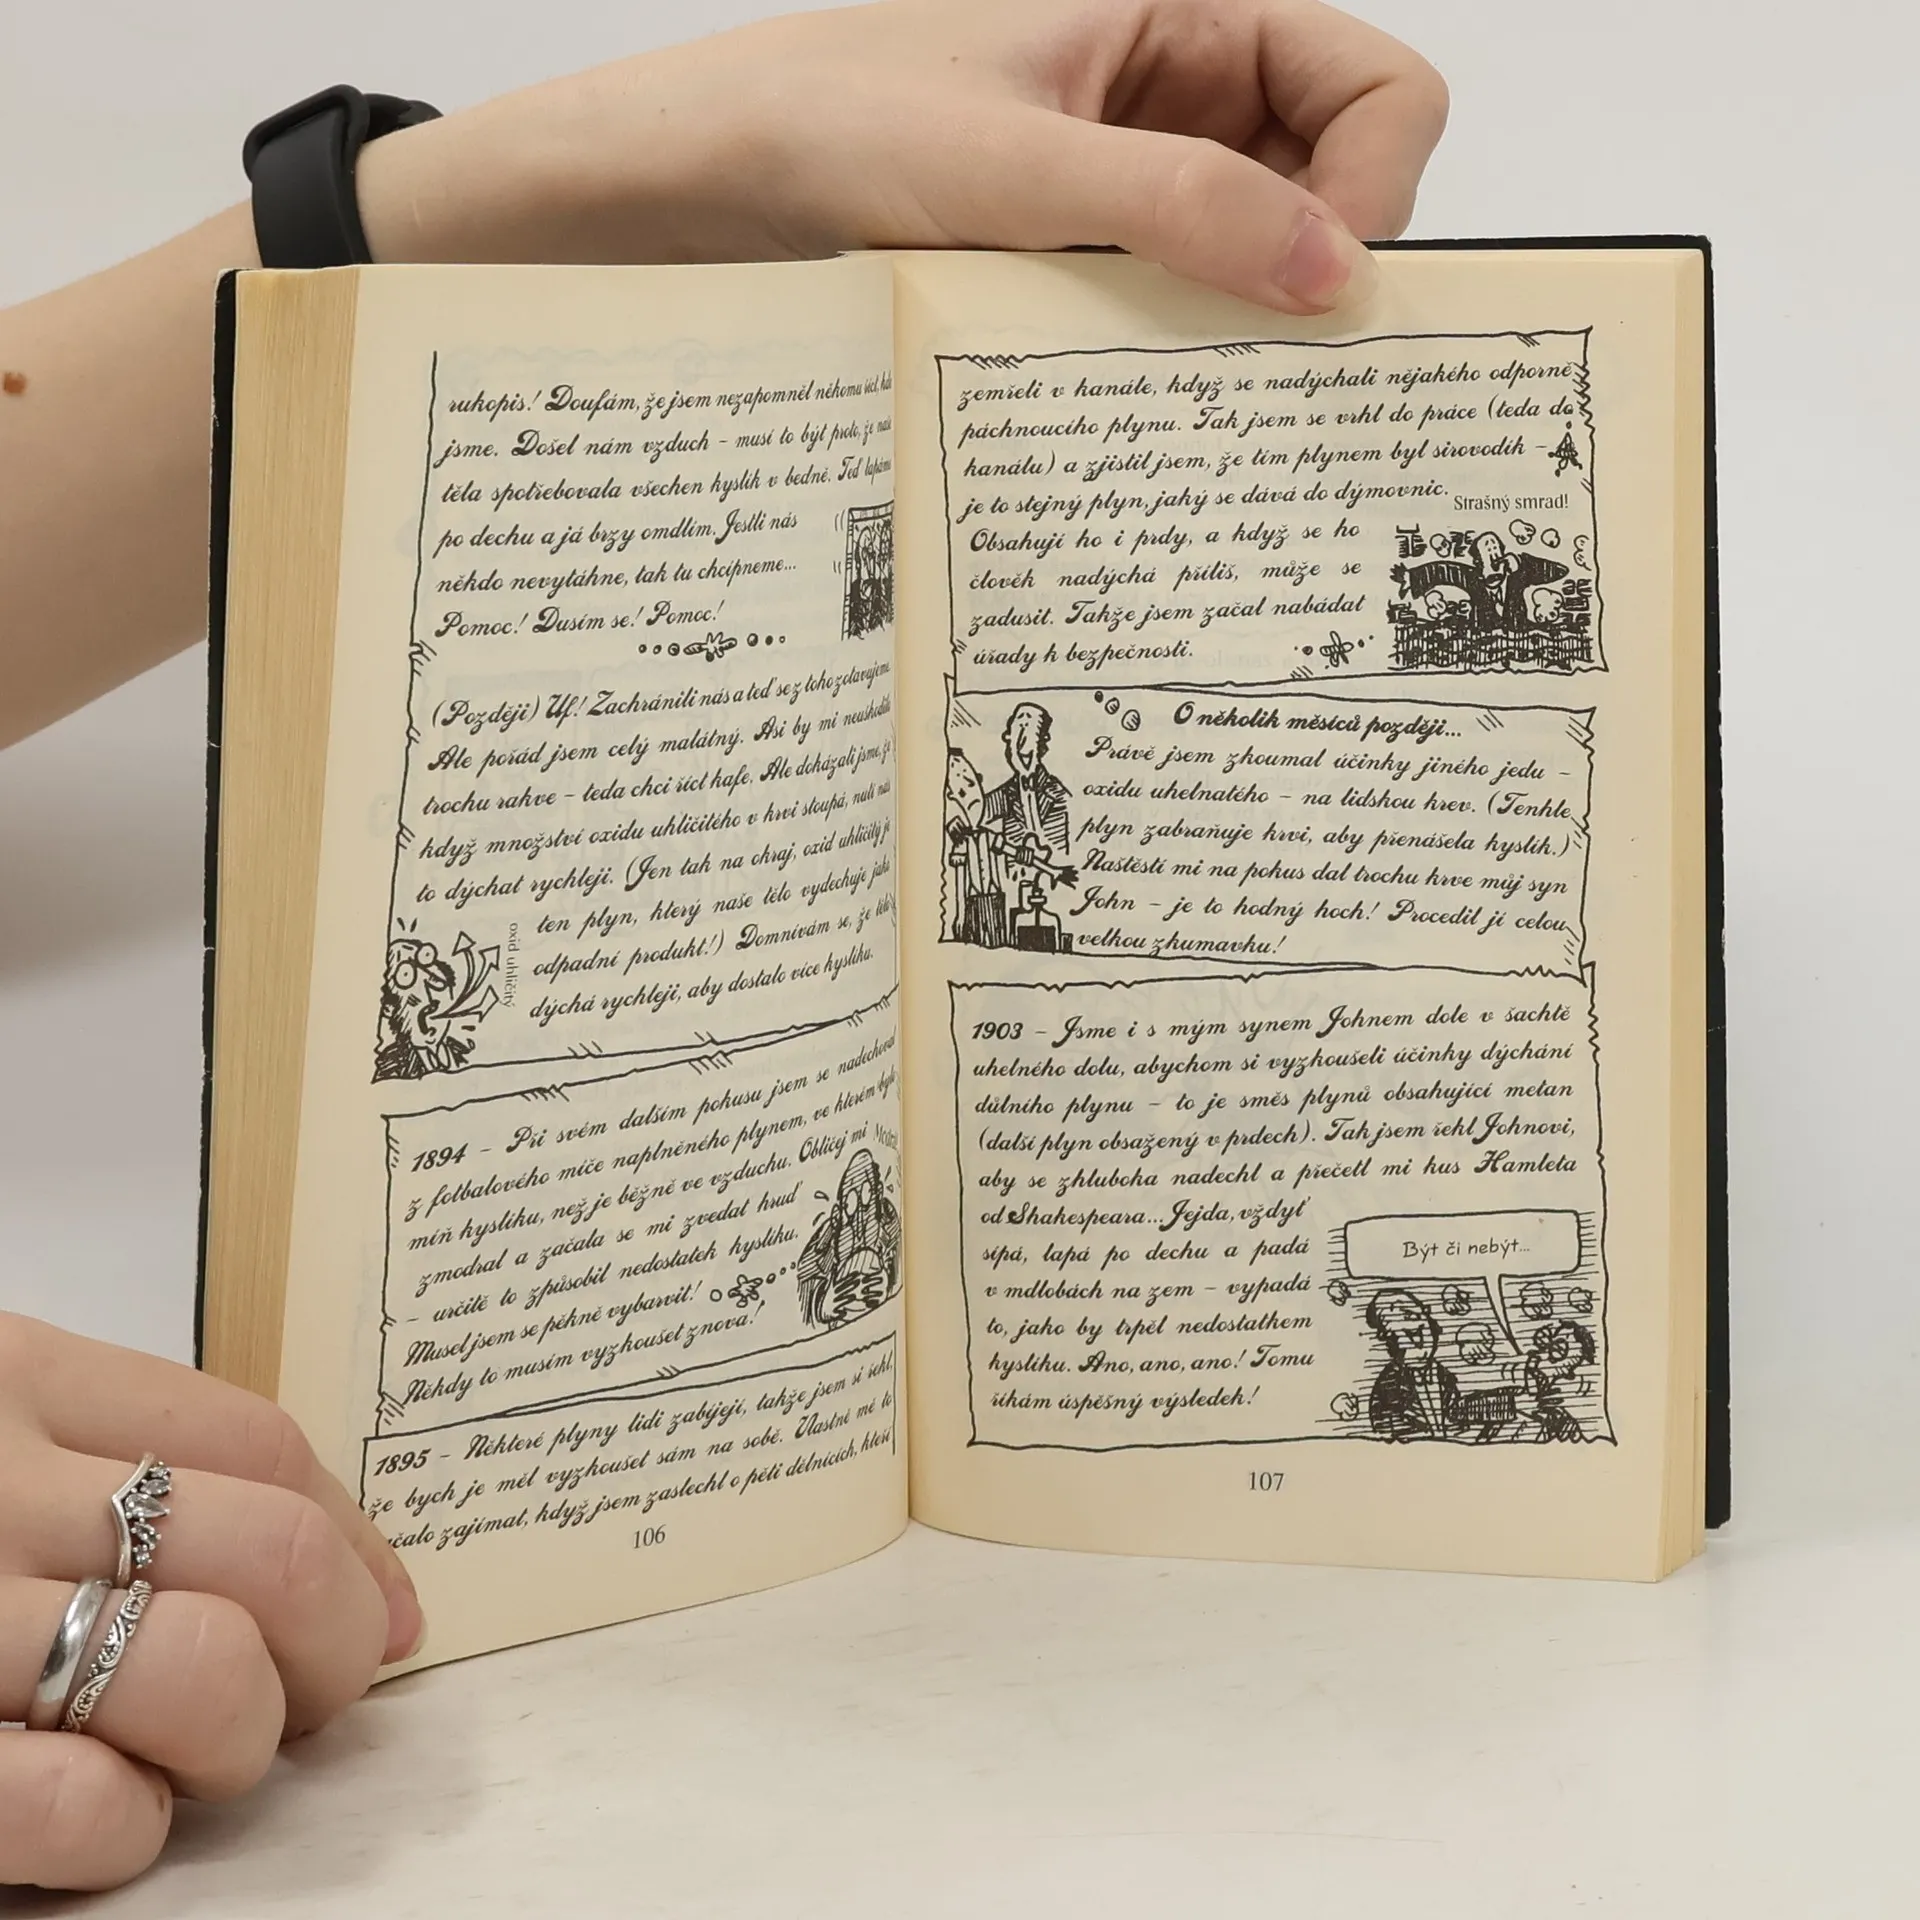 rukopis! Doufám, že jsem nezapomněl někomu říct, kde
jsme. Došel nám vzduch – musí to být proto, že naše
těla spotřebovala všechen kyslík v bedně. Teď lapáme
po dechu a já brzy omdlím. Jestli nás
někdo nevytáhne, tak tu chcípneme...
Pomoc! Dusím se! Pomoc!
(Později) Uf! Zachránili nás a teď se z toho zotavujeme.
Ale pořád jsem celý malátný. Asi by mi neuškodilo
trochu rakve – teda chci říct kafe. Ale dokázali jsme, že
když množství oxidu uhličitého v krvi stoupá, nutí nás
to dýchat rychleji. (Jen tak na okraj, oxid uhličitý je
ten plyn, který naše tělo vydechuje jako
odpadní produkt!) Domnívám se, že tělo
dýchá rychleji, aby dostalo více kyslíku.
oxid uhličitý
1894 – Při svém dalším pokusu jsem se nadechoval
z fotbalového míče naplněného plynem, ve kterém bylo
míň kyslíku, než je běžně ve vzduchu. Obličej mi
zmodral a začala se mi zvedat hruď
– určitě to způsobil nedostatek kyslíku.
Musel jsem se pěkně vybarvit!
Někdy to musím vyzkoušet znova!
1895 – Některé plyny lidi zabíjejí, takže jsem si řekl,
že bych je měl vyzkoušet sám na sobě. Vlastně mě to
začalo zajímat, když jsem zaslechl o pěti dělnících, kteří
106
zemřeli v kanále, když se nadýchali nějakého odporně
páchnoucího plynu. Tak jsem se vrhl do práce (teda do
kanálu) a zjistil jsem, že tím plynem byl sirovodík –
je to stejný plyn, jaký se dává do dýmovnic.
Strašný smrad!
Obsahují ho i prdy, a když se ho
člověk nadýchá příliš, může se
zadusit. Takže jsem začal nabádat
úřady k bezpečnosti.
O několik měsíců později...
Právě jsem zkoumal účinky jiného jedu –
oxidu uhelnatého – na lidskou krev. (Tenhle
plyn zabraňuje krvi, aby přenášela kyslík.)
Naštěstí mi na pokus dal trochu krve můj syn
John – je to hodný hoch! Procedil jí celou
velkou zkumavku!
1903 – Jsme i s mým synem Johnem dole v šachtě
uhelného dolu, abychom si vyzkoušeli účinky dýchání
důlního plynu – to je směs plynů obsahující metan
(další plyn obsažený v prdech). Tak jsem řekl Johnovi,
aby se zhluboka nadechl a přečetl mi kus Hamleta
od Shakespeara... Jejda, vždyť
sípá, lapá po dechu a padá
v mdlobách na zem – vypadá
to, jako by trpěl nedostatkem
kyslíku. Ano, ano, ano! Tomu
říkám úspěšný výsledek!
Být či nebýt...
107